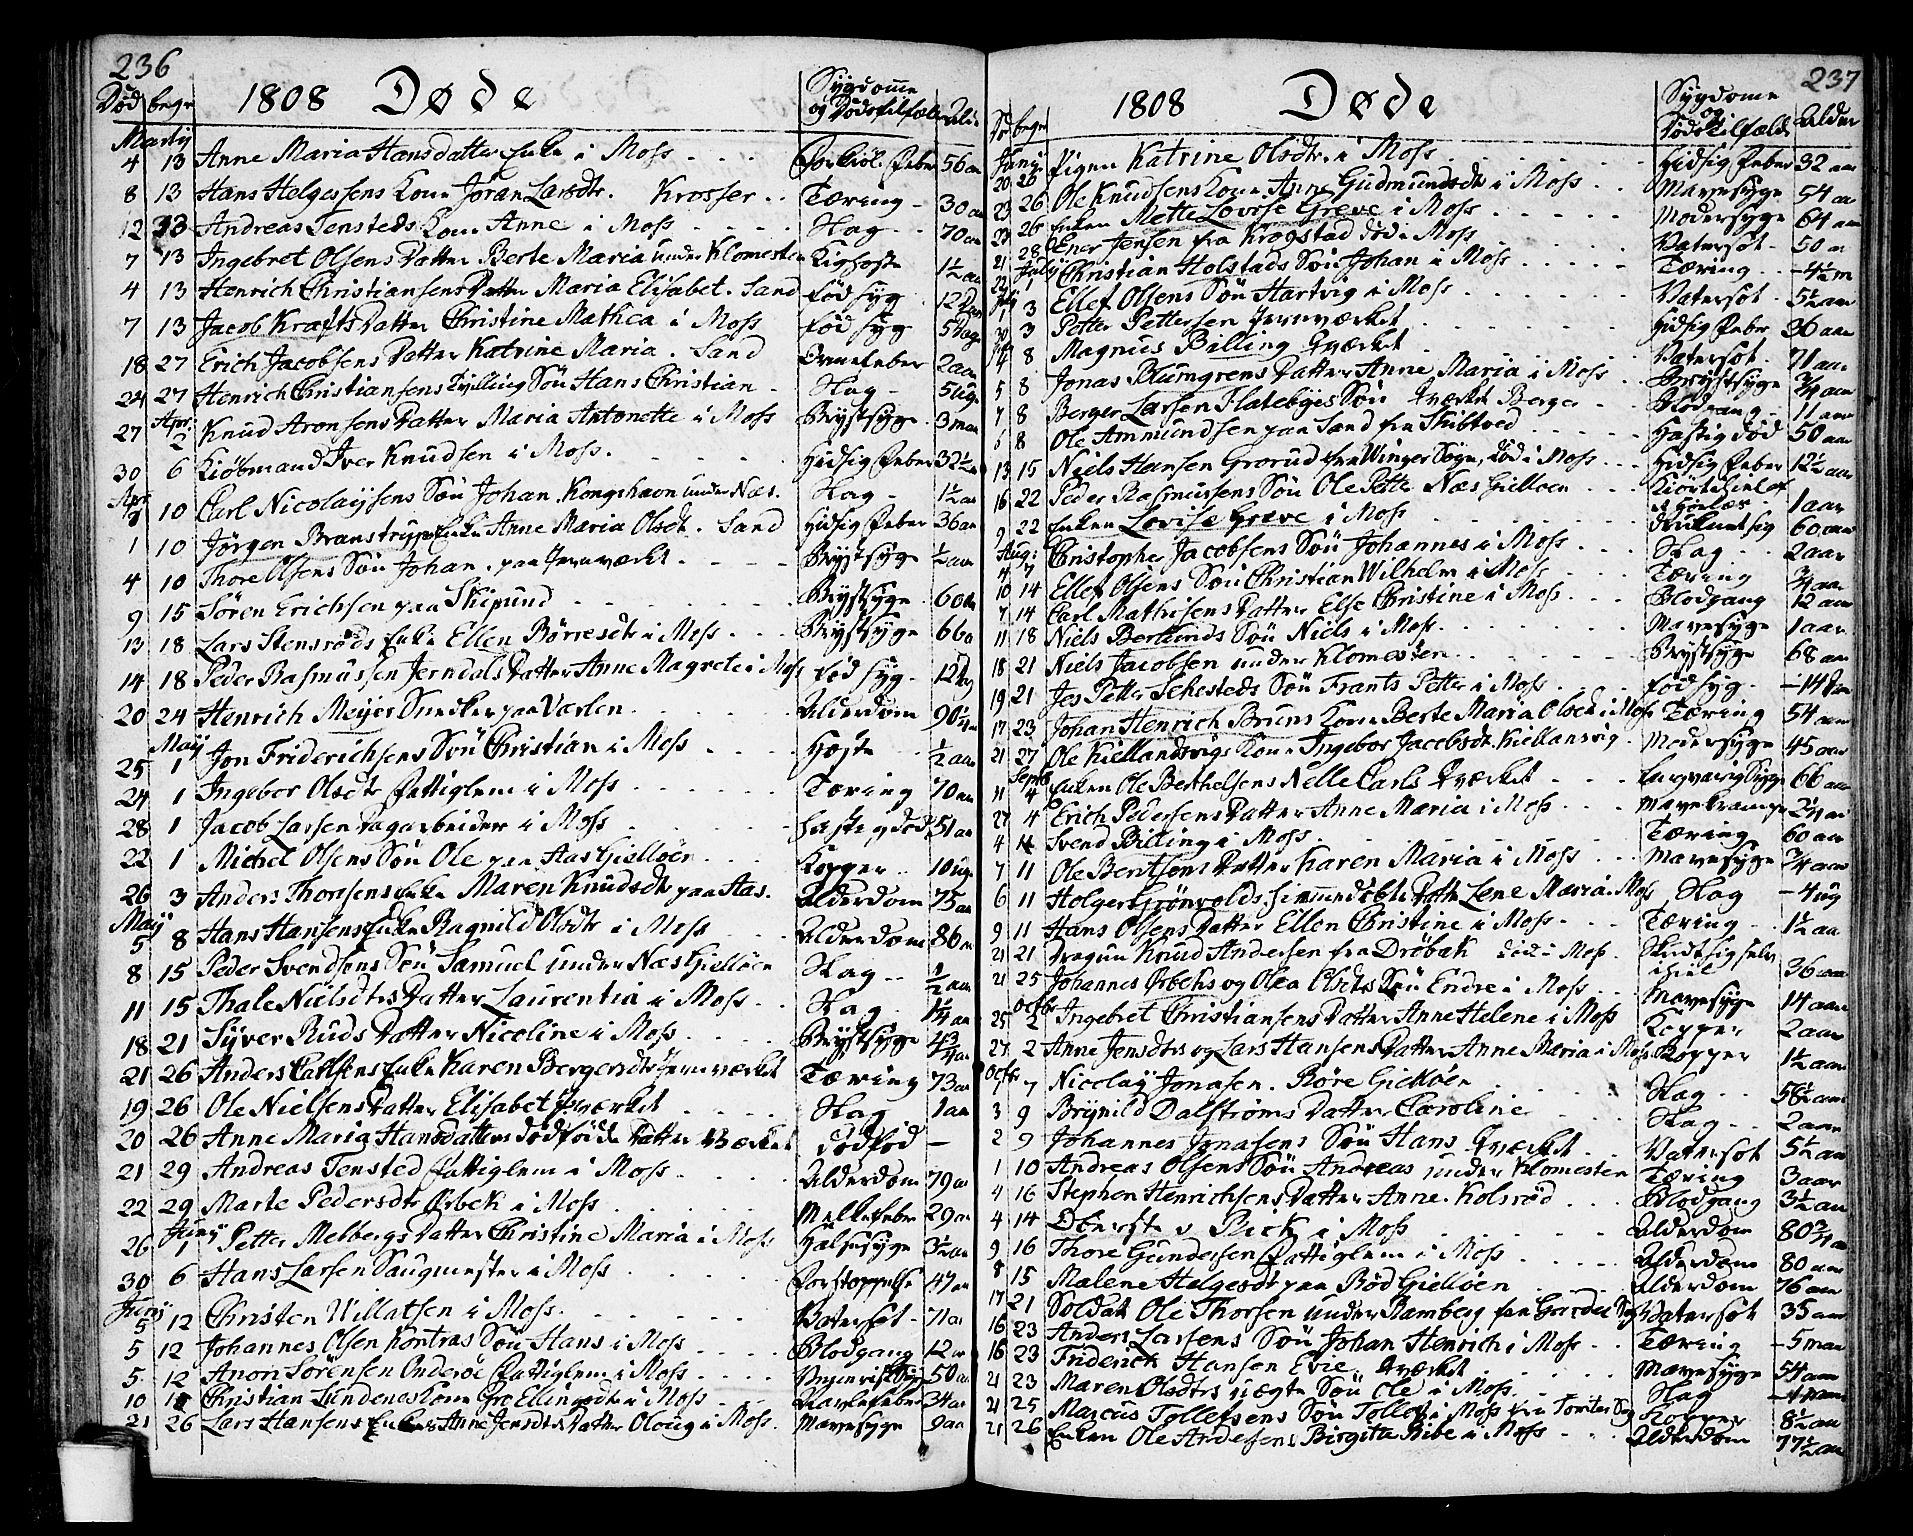 236
Død begr 1808 Døde Sygdomme og Dødstilfælde Alder
Martij
4 13 Anne Maria Hansdatter Enke i Moss Forkiøl. Feber 56 aar
8 13 Hans Helgessens Kone Joran Larsdtr. Krosser Tæring 30 aar
12 23 Andreas Tensteds Kone Anne i Moss Slag 70 aar
7 13 Ingebret Olsens Datter Berte Maria under Klomesten Kighoste 1½ aar
4 13 Henrich Christiansens Datter Maria Elisabet. Sand fød syg 12 Dag
7 13 Jacob Krafts Datter Christine Mathea i Moss fød syg 5 dage
18 27 Erich Jacobsens Datter Katrine Maria. Sand Ormefeber 2 aar
24 27 Henrich Christiansens Tvilling Søn Hans Christian Slag 5 uger
27 Apr. 2 Knud Aronsens Datter Maria Antonette i Moss Brystsyge 3 maa
30 6 Kiøbmand Iver Knudsen i Moss. Hidsig Feber 32½
Apr 7 10 Carl Nicolaysens Søn Johan. Kongshavn under Næs. Slag 1½ aar
1 10 Jørgen Branstrups Enke Anne Maria Olsdt. Sand Hidsig Feber 36 aar
4 10 Thore Olsens Søn Johan. paa Jernværket Brystsyge ½ aar
9 15 Søren Erichsen paa Skipund Brystsyge 60 aar
13 18 Lars Stensrøds Enke Ellen Børresdtr i Moss Brystsyge 66 a
14 18 Peder Rasmussen Jerndals Datter Anne Magrete i Moss fød syg 12 Dag
20 24 Henrich Meyer Snedker paa Varlen Alderdom 90¼
25 May 1 Jon Friderichsens Søn Christian i Moss Hoste ½ aar
24 1 Ingebor Olsdt Fattiglem i Moss Tæring 70 aar
28 1 Jacob Larsen Dagarbeider i Moss hastig død 51 aar
22 1 Michel Olsens Søn Ole paa Aas Gielløen Kopper 10 uge
26 3 Anders Thorsens Enke Maren Knudsdt paa Aas. Alderdom 75 aar
May 5 8 Hans Hansens Enke Ragnild Olsdtr i Moss Alderdom 86
8 15 Peder Svendsens Søn Samuel under Næs Gielløen Slag ½ aar
11 15 Thale Nielsdtrs Datter Laurentia i Moss Slag 1¼ aar
18 21 Syver Ruds Datter Nicoline i Moss Brystsyge 4¾ aar
21 26 Anders Carlsens Enke Karen Bergersdtr Jernværket Tæring 73 aar
19 26 Ole Nielsens Datter Elisabet Jværket Slag 1 aar
20 26 Anne Maria Hansdatters dødfødde Datter Værket Dødfød —
21 29 Andreas Tensted Fattiglem i Moss Alderdom 79 a
22 29 Marte Pedersdtr Orbek i Moss Melkefeber 29 a
26 Juny 1 Petter Melbergs Datter Christine Maria i Moss Halssyge 3½ aar
30 6 Hans Larsen Saugmester i Moss Forstoppelse 47
Juny 5 12 Christen Willatsen i Moss. Vatersot 71 a
5 12 Johannes Olsen Kontras Søn Hans i Moss Blodgang
5 12 Anon Sørensen Onderøe Fattiglem i Moss 50 a
10 Christian Lundenes Kone Gro Ellingsdtr i Moss 34 a
21 26 Lars Hansens Enkes Anne Jensdtrs Datter Oloug i Moss. Mavesyge 9 aar
237
Dø begr 1808 Døde Sygdome Dødstilfælde Alder
Juny 20 26 Pigen Katrine Olsdtr. i Moss Hidsig Feber 32 aar
23 26 Ole Knudsens Kone Anne Gudmundsdt i Moss Mavesyge 54 aar
23 26 Enken Mette Lovise Greve i Moss Modersyge 64 aar
21 28 Ener Jensen fra Krogstad død i Moss Vatersot 50 a
22 July 1 Christian Holstads Søn Johan i Moss Tæring 4½ m
July 1 3 Ellef Olsens Søn Hartvig i Moss Vatersot 5½ aar
30 3 Petter Pettersen Jernværket Hidsig Feber 36 aar
4 8 Magnus Billing Jværket Vatersot 71 aar
5 8 Jonas Blumgrens Datter Anne Maria i Moss Brystsyge ¾ aar
7 8 Berger Larsen Flatebyes Søn Jværket Berger Blodgang 11 aar
6 8 Ole Ammundsen paa Sand fra Skibtved Hastig død 50 aar
13 15 Niels Hansen Grorud fra Winger Sogn, Død i Moss Hidsig Feber 12½ aar
16 22 Peder Rasmussens Søn Ole Petter Næs Gielløen 1 aar
9 22 Enken Lovise Greve i Moss 60 aar
Aug: 4 7 Christopher Jacobsens Søn Johannes i Moss Slag 2 aar
10 14 Ellef Olsens Søn Christian Wilhelm i Moss Tæring ¾ aar
7 14 Carl Mathisens Datter Else Christine i Moss Blodgang 12 aar
11 18 Niels Berlunds Søn Niels i Moss Mavesyge 1 aar
18 21 Niels Jacobsen under Klomesten Brystsyge 68 aar
19 21 Jes Petter Sehesteds Søn Frants Petter i Moss fød syg 14 D
17 23 Johan Henrich Bruns Kone Berte Maria Olsdt i Moss Tæring 54 aar
21 27 Ole Kiellandsvigs Kone Ingebor Jacobsdt. Kiellansvig Modersyge 45 aar
Septb 11 4 Enken Ole Berthelsens Nelle Carls Jværket Langvarig Syge 66 aar
27 4 Erich Pedersens Datter Anne Maria i Moss Mavekrampe 2¼ aar
4 11 Svend Billing i Moss Tæring 60 aar
7 11 Ole Bentsens Datter Karen Maria i Moss Mavesyge ¾ aar
6 11 Holger Grønvolds hiemmedøbte Datter Lene Maria. Moss Slag 4 ug
9 11 Hans Olsens Datter Ellen Christine i Moss Tæring 1½ aar
21 21 Dragun Knud Andersen fra Drøbak død i Moss. Skudt sig selv ihiel 36 aar
21 25 Johannes Orbeks og Olea Olsdtrs Søn Endre i Moss Mavesyge 14 aar
25 Octbr 2 Ingebret Christiansens Datter Anne Helene i Moss Kopper 2 aar
27 2 Anne Jensdtrs og Lars Hansens Datter Anne Maria i Moss Kopper 1½ aar
Octbr 1 7 Nicolay Jonasen. Røre Gielløen Slag 56½ aar
3 9 Brynild Dalstrøms Datter Caroline Slag 2 aar
2 9 Johannes Jonasens Søn Hans Jværket Vatersot 5½ aar
1 10 Andreas Olsens Søn Andreas under Klomesten Tæring 3 aar
4 16 Stephen Henrichsens Datter Anne. Kolsrød Blodgang 3½ aar
4 14 Oberste v Beck i Moss Alderdom 80¾ aar
9 16 Thore Gundersen Fattiglem i Moss Alderdom 80 aar
8 15 Malene Helgesdt paa Rød Gielløen Alderdom 76 aar
17 21 Soldat Ole Thorsen under Ramberg fra Vatersot 35 aar
16 23 Anders Larsens Søn Johan Henrich i Moss Tæring 5 maa
16 23 Friderich Hansen Evie Jværket Mavesyge 54 aar
21 23 Maren Olsdtrs uægte Søn Ole i Moss Slag
21 25 Marcus Tollefsens Søn Tollef i Moss fra Kopper 8½ aar
21 26 Enken Ole Andersens Birgita Ribe i Moss Alderdom 77½ aar